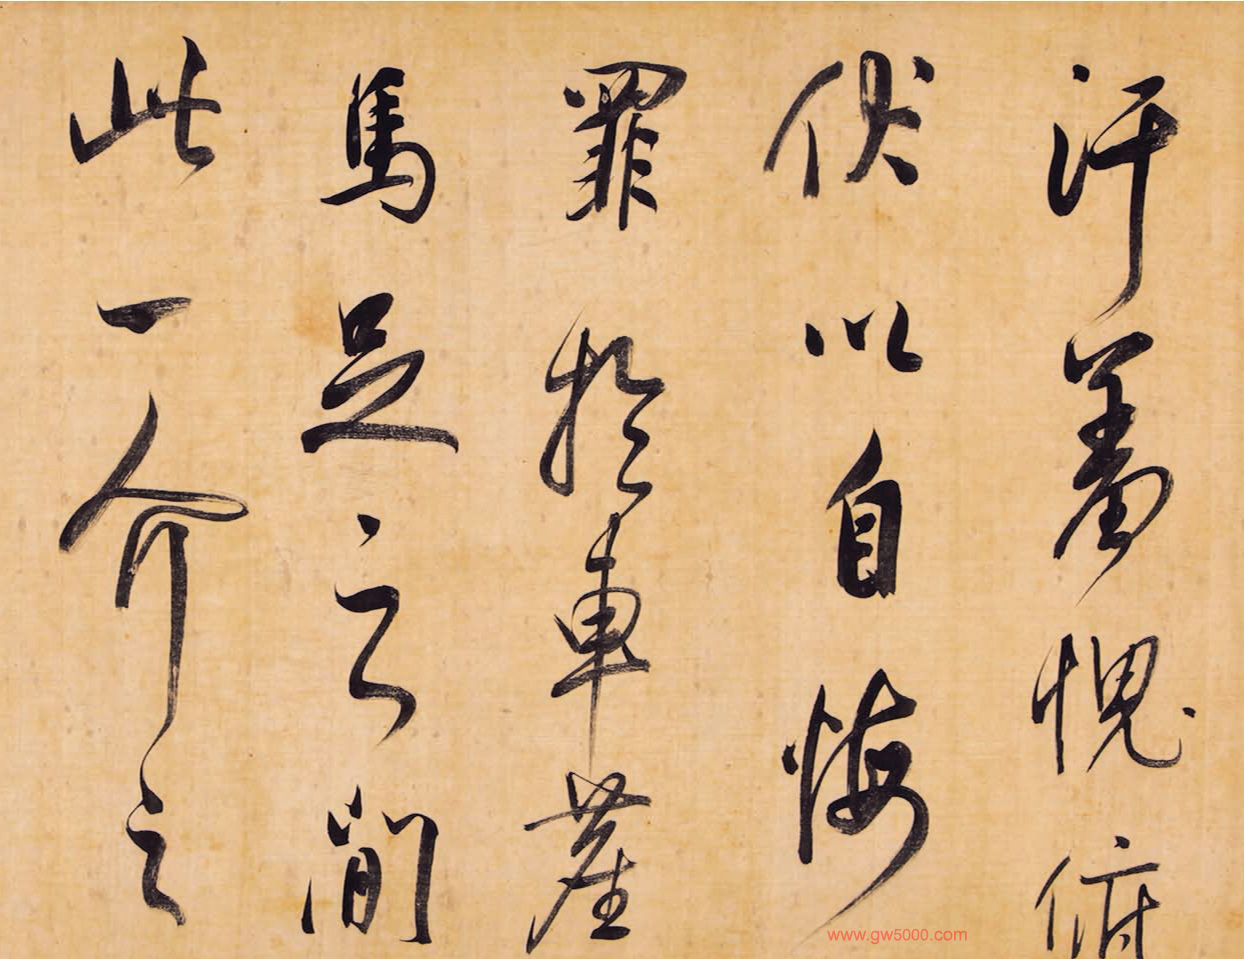 汗羞愧俯
伏以自悔
罪於車塵
馬足之間
此一介之
www.gw5000.com